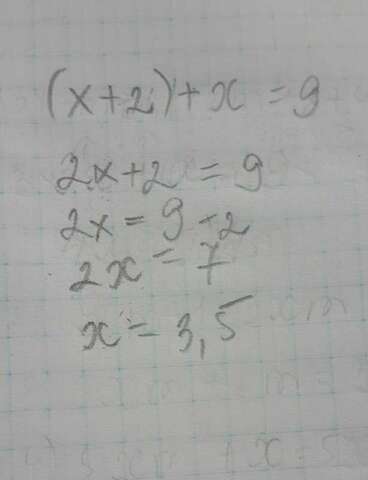 (x+2)+x=9
2x+2=9
2x=9-2
2x=7
x=3,5